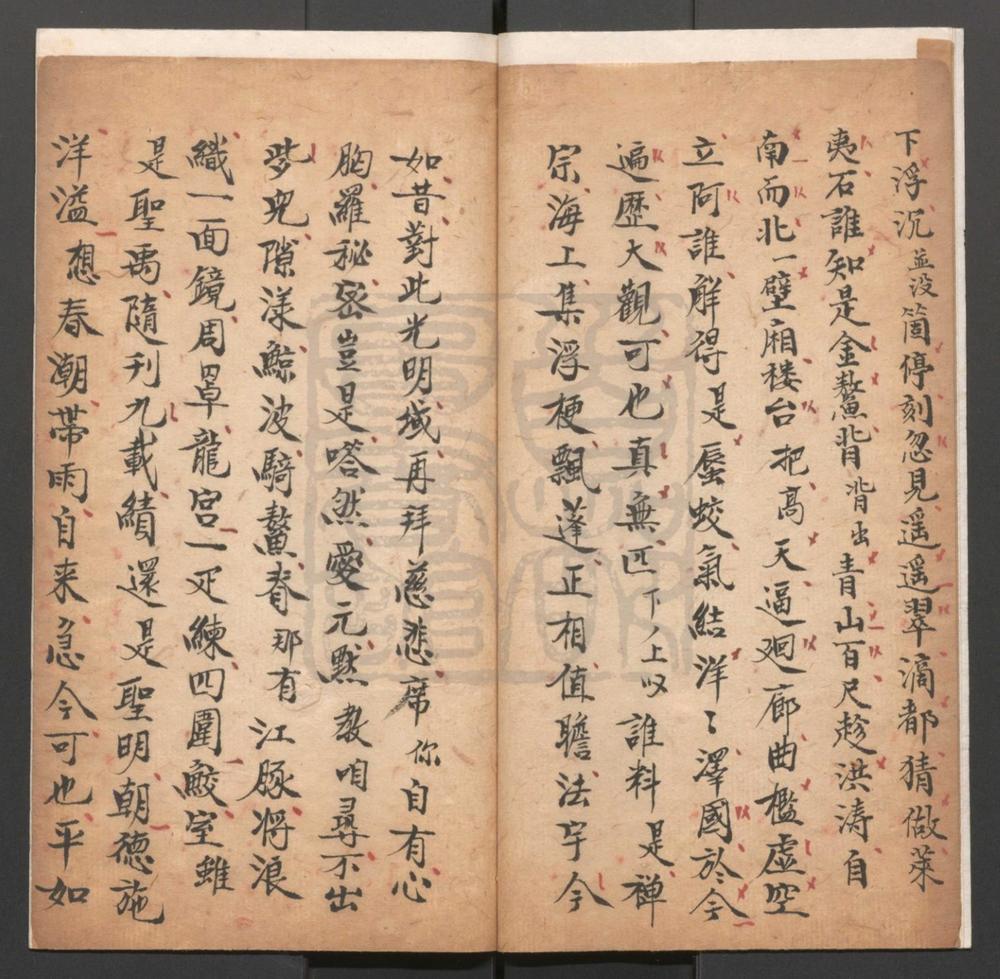 下浮沉並没箇停刻忽見遥遥翠滴都猜做萊
夷石誰知是金鰲背背出青山百尺趁洪涛自
南而北一壁廂楼台把高天逼廻廊曲檻虚空
立阿誰解得是蜃蛟氣結洋〻澤國於今
遍歷大觀可也真無匹下ノ上叹誰料是禅
宗海上集浮梗飄蓬正相值瞻法宇今
如昔對此光明域再拜慈悲席你自有心
胸羅秘密豈是嗒然愛元黙教咱尋不出
些兒隙漾鯨波騎鰲脊那有江豚将浪
織一面鏡周罩龍宮一疋練四圍鮫室雖
是聖禹随刋九載績還是聖明朝德施
洋溢想春潮帶雨自来急今可也平如